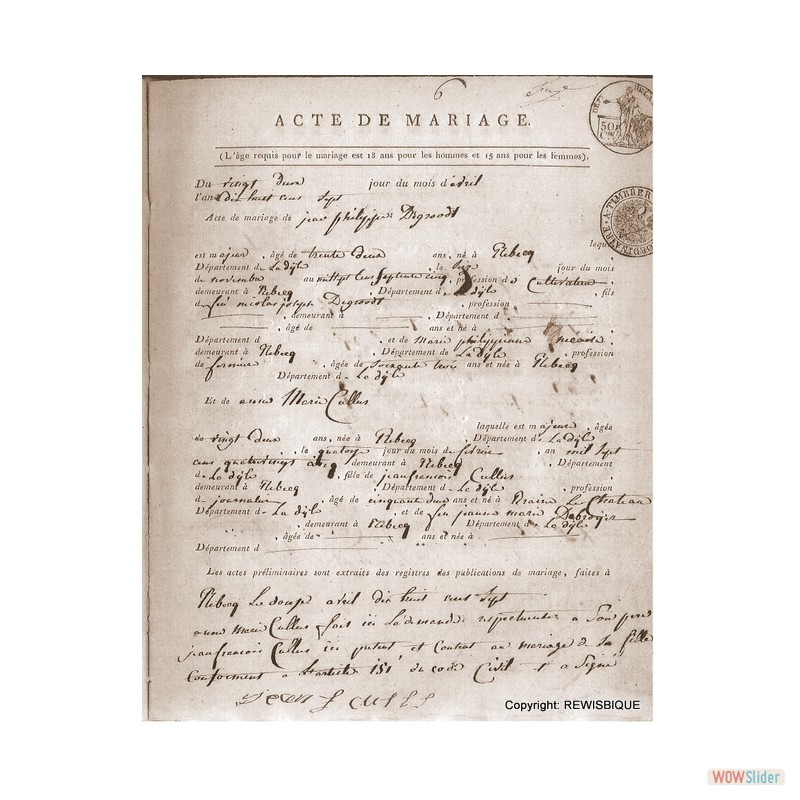 6
DÉPT
50
A TIMBRER
ORDINAIRE
ACTE DE MARIAGE.
(L'âge requis pour le mariage est 18 ans pour les hommes et 15 ans pour les femmes).
Du vingt deux jour du mois d'avril
l'an dix huit cens sept
Acte de mariage de jean philippe Degroodt
lequel
est majeur , âgé de trente deux ans, né à Rebecq
Département de La dÿle , le jour du mois
de novembre au mil sept cens septante cinq, profession de Cultivateur
demeurant à Rebecq , Département d La dÿle , fils
de feu nicolas joseph Degroodt , profession
, demeurant à , Département d
, âgé de ans et né à
Département d , et de Marie philippienne
demeurant à Rebecq , Département de La dÿle , profession
de fermière , âgée de Soixante trois ans et née à Rebecq
Département d La dÿle
Et de anne Marie Cullus
laquelle est majeure , âgée
de vingt deux ans, née à Rebecq , Département d La dÿle
, le quatorze jour du mois de février , an mil sept
cens quatrevingt cinq demeurant à Rebecq , Département
d La dÿle , fille de jean francois Cullus
demeurant à Rebecq , Département d La dÿle , profession
d journalier , âgé de cinquante deux ans et né à Braine Le Chateau
Département d La dÿle , et de feu jeanne marie
, demeurant à Rebecq Département d La dÿle
, âgée de ans et née à
Département d
Les actes préliminaires sont extraits des registres des publications de mariage, faites à
Rebecq Le douze avril dix huit cens Sept
anne Marie Cullus fait ici La demande respectueuse a Son pere
jean francois Cullus ici présent et Consent au mariage de Sa fille
Conforment a L'article 151 du code Civil et a Signé
Jean F CULLUS
Copyright: REWISBIQUE
WOWSlider